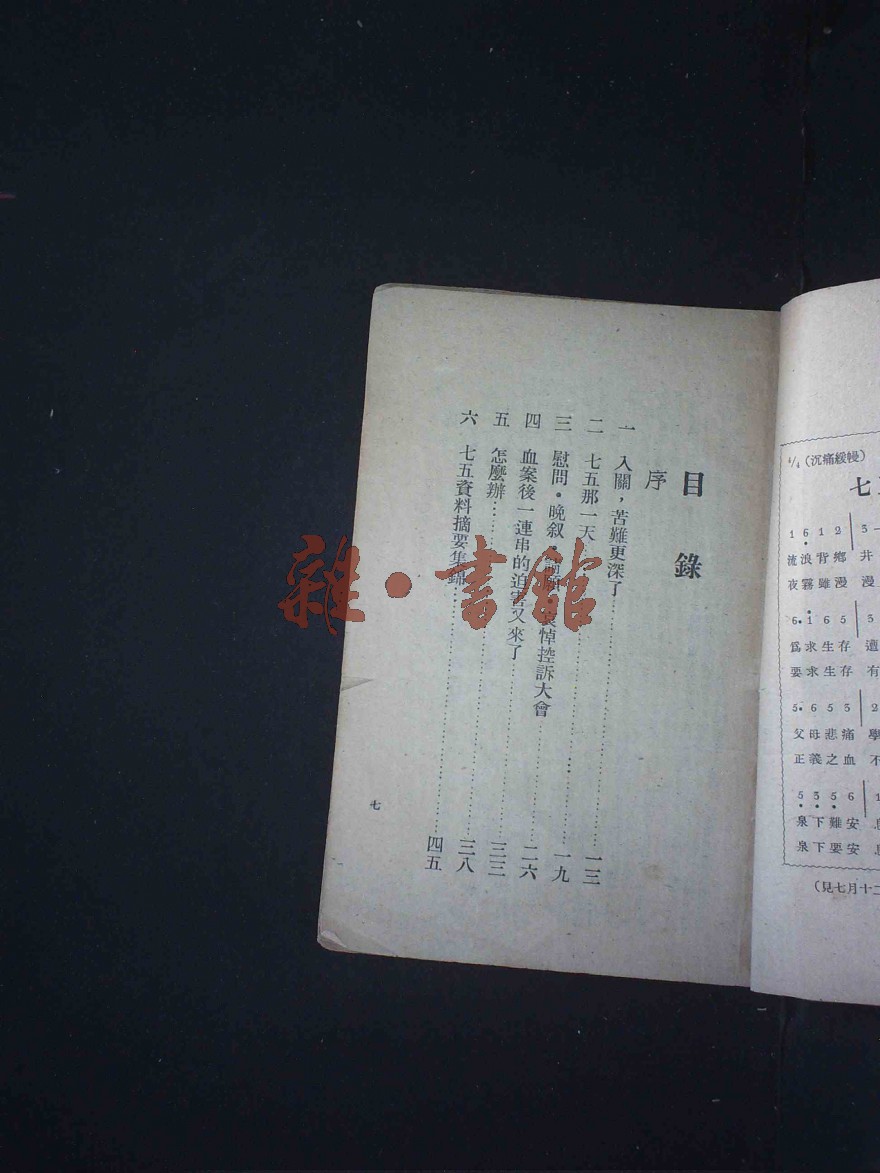 目錄
序
一 入關，苦難更深了……一三
二 七五那一天……一九
三 慰問・晚叙・哀悼控訴大會……二六
四 血案後一連串的迫害又來了……三三
五 怎麼辦……三八
六 七五資料摘要集錦……四五
七
4/4 (沉痛緩慢)
七
1 6 1 2 3
流浪背鄉 井
夜霧雖漫 漫
6 1 6 5 5
爲求生存 遭
要求生存 有
5 6 5 5 2
父母悲痛 學
正義之血 不
5 5 5 6 1
泉下難安
泉下要安
(見七月十二
雜・書館